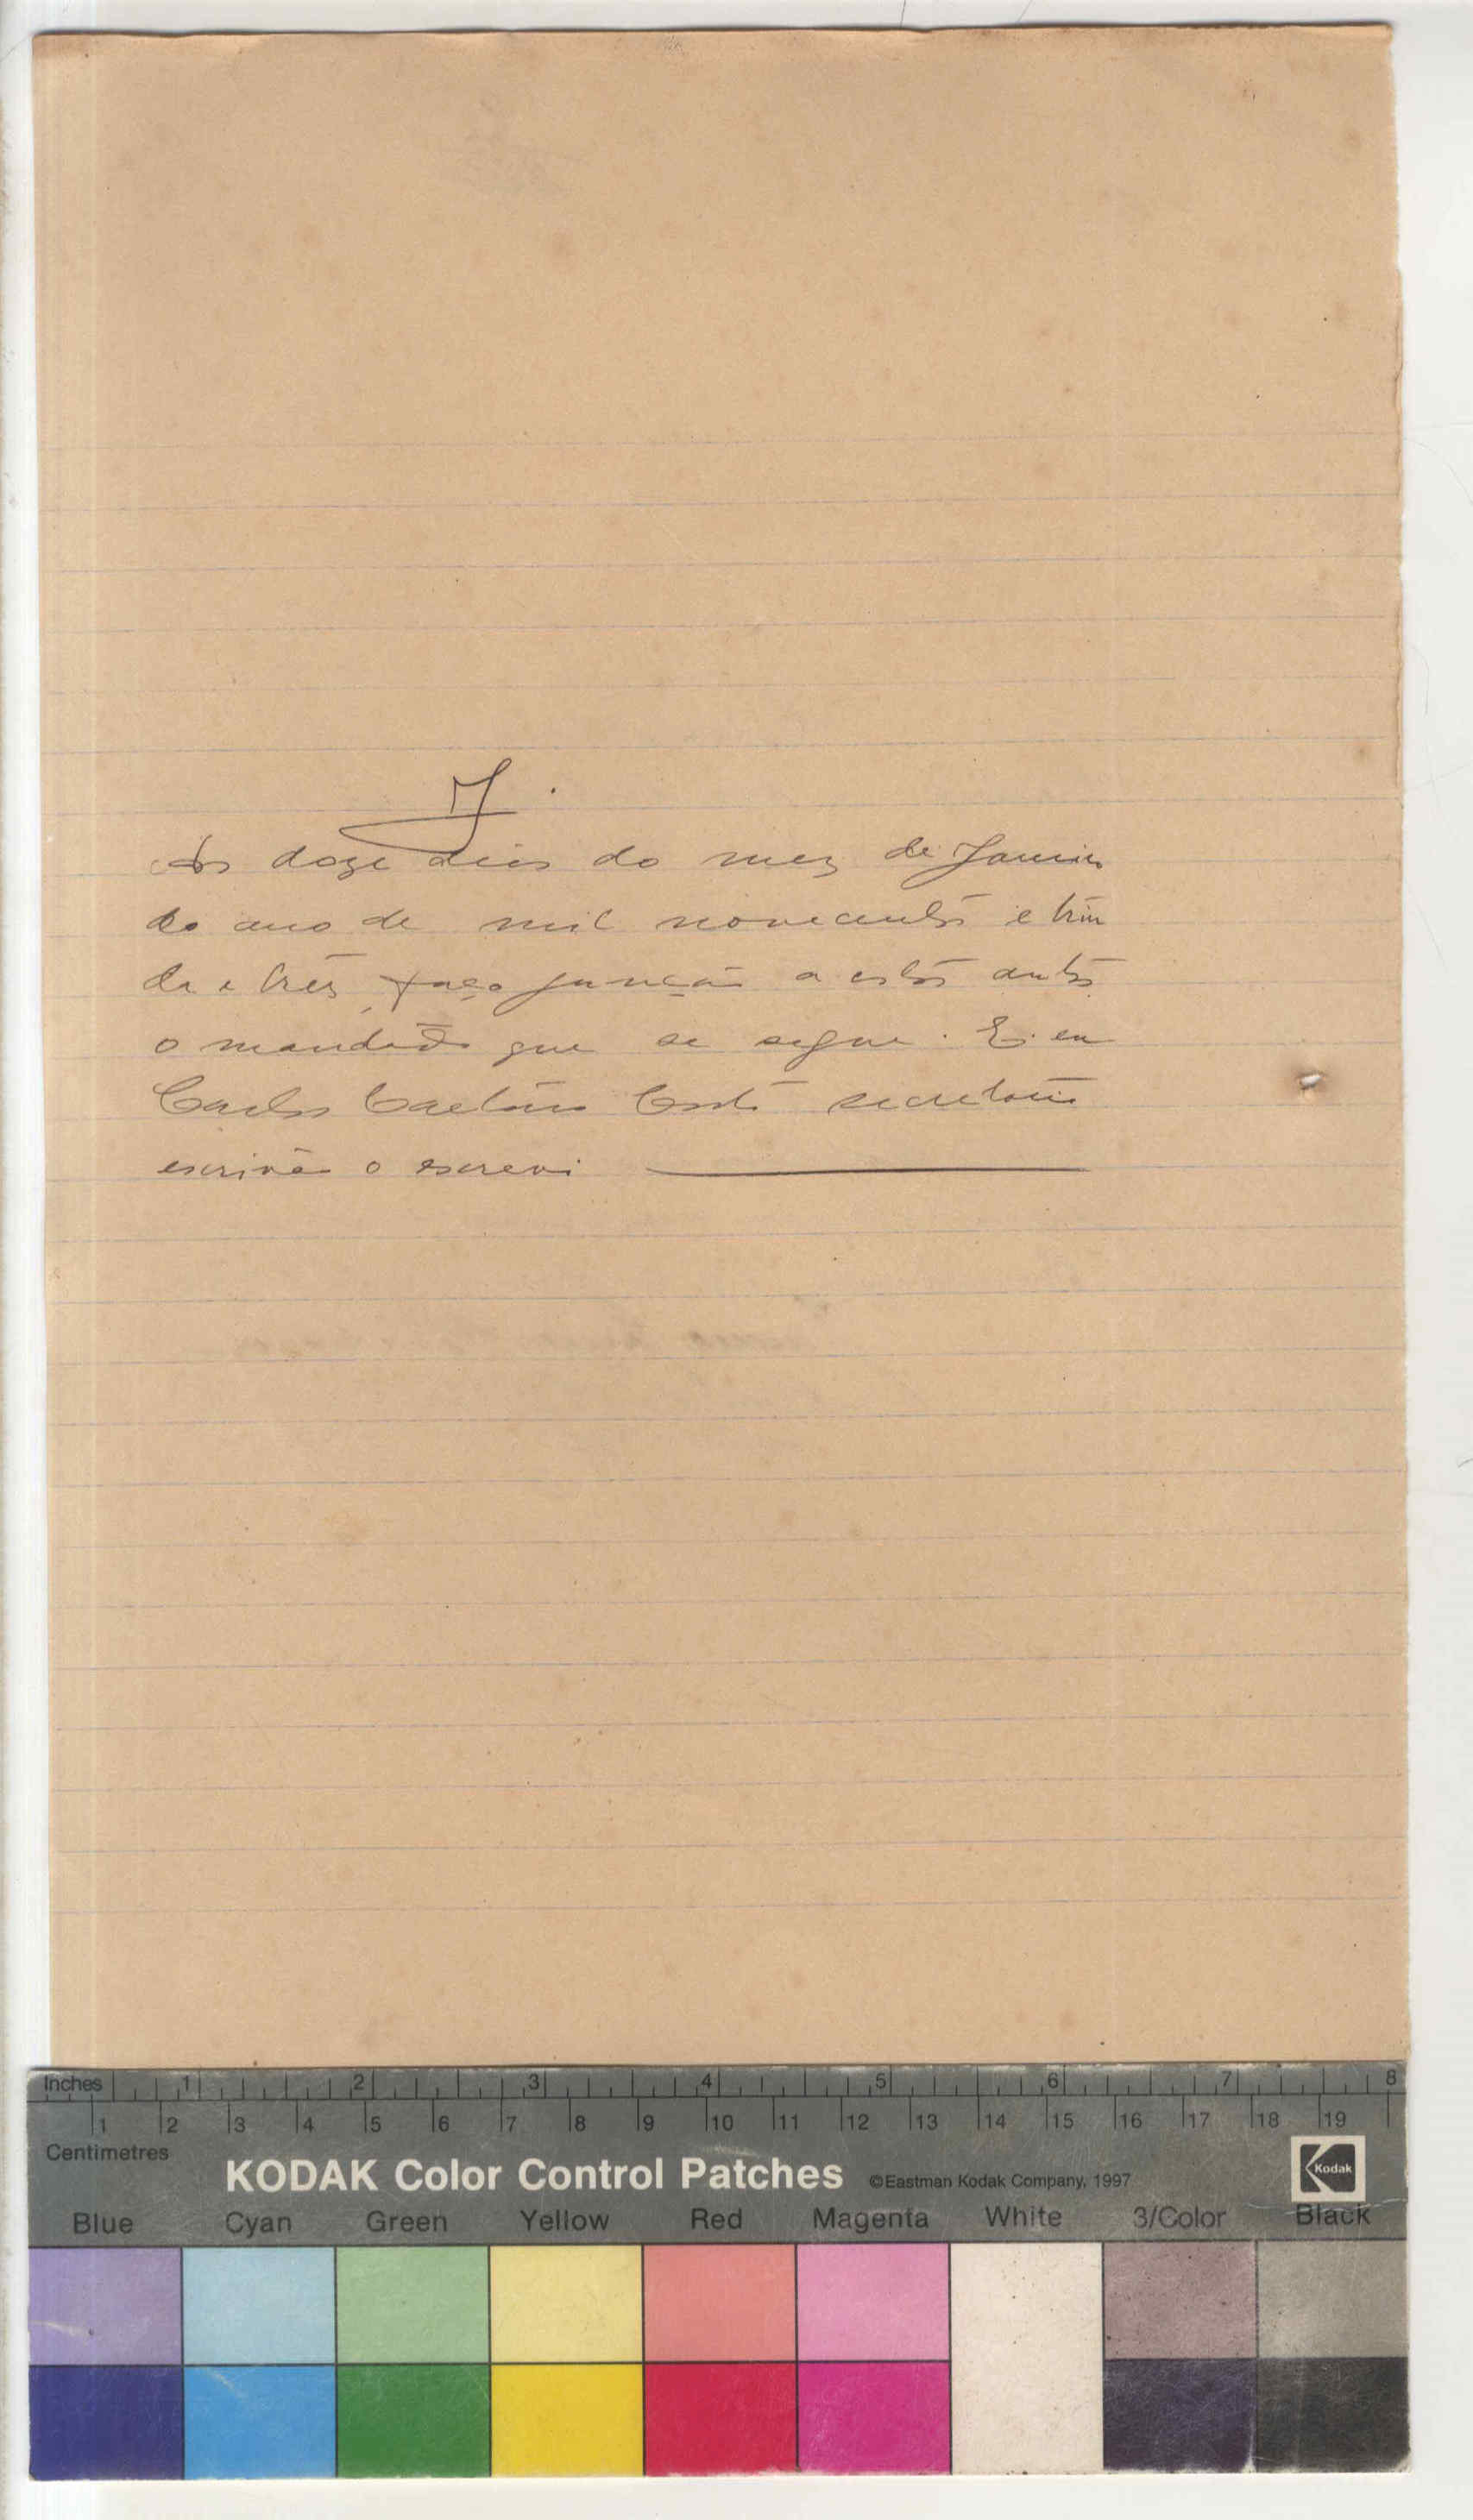 J.
Aos doze dias do mez de Janeiro
do ano de mil novecentos e trin
ta e três, faço junção a estes autos
o mandado que se segue. E eu
Carlos Caetano Costa secretario
escrivão o escrevi
Inches 1 2 3 4 5 6 7 8
1 2 3 4 5 6 7 8 9 10 11 12 13 14 15 16 17 18 19
Centimetres
KODAK Color Control Patches ©Eastman Kodak Company, 1997 Kodak
Blue Cyan Green Yellow Red Magenta White 3/Color Black